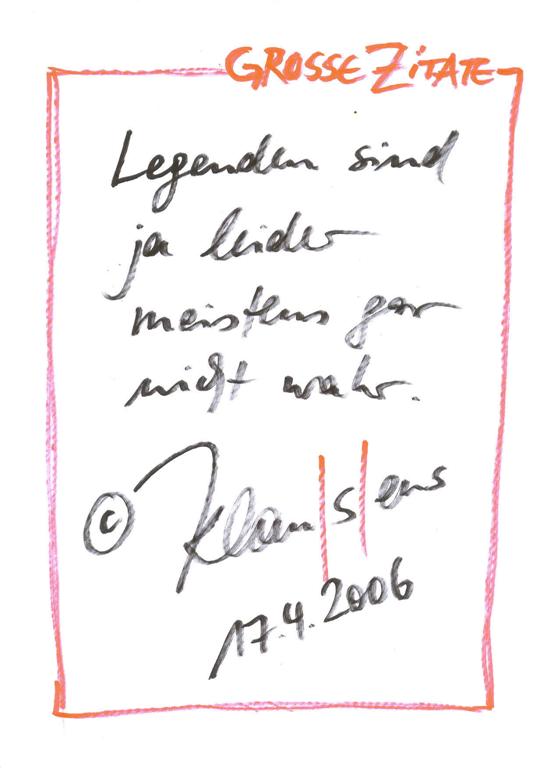 GROSSE ZITATE
Legenden sind
ja leider
meistens gar
nicht wahr.
© Klau|s|ens
17.4.2006